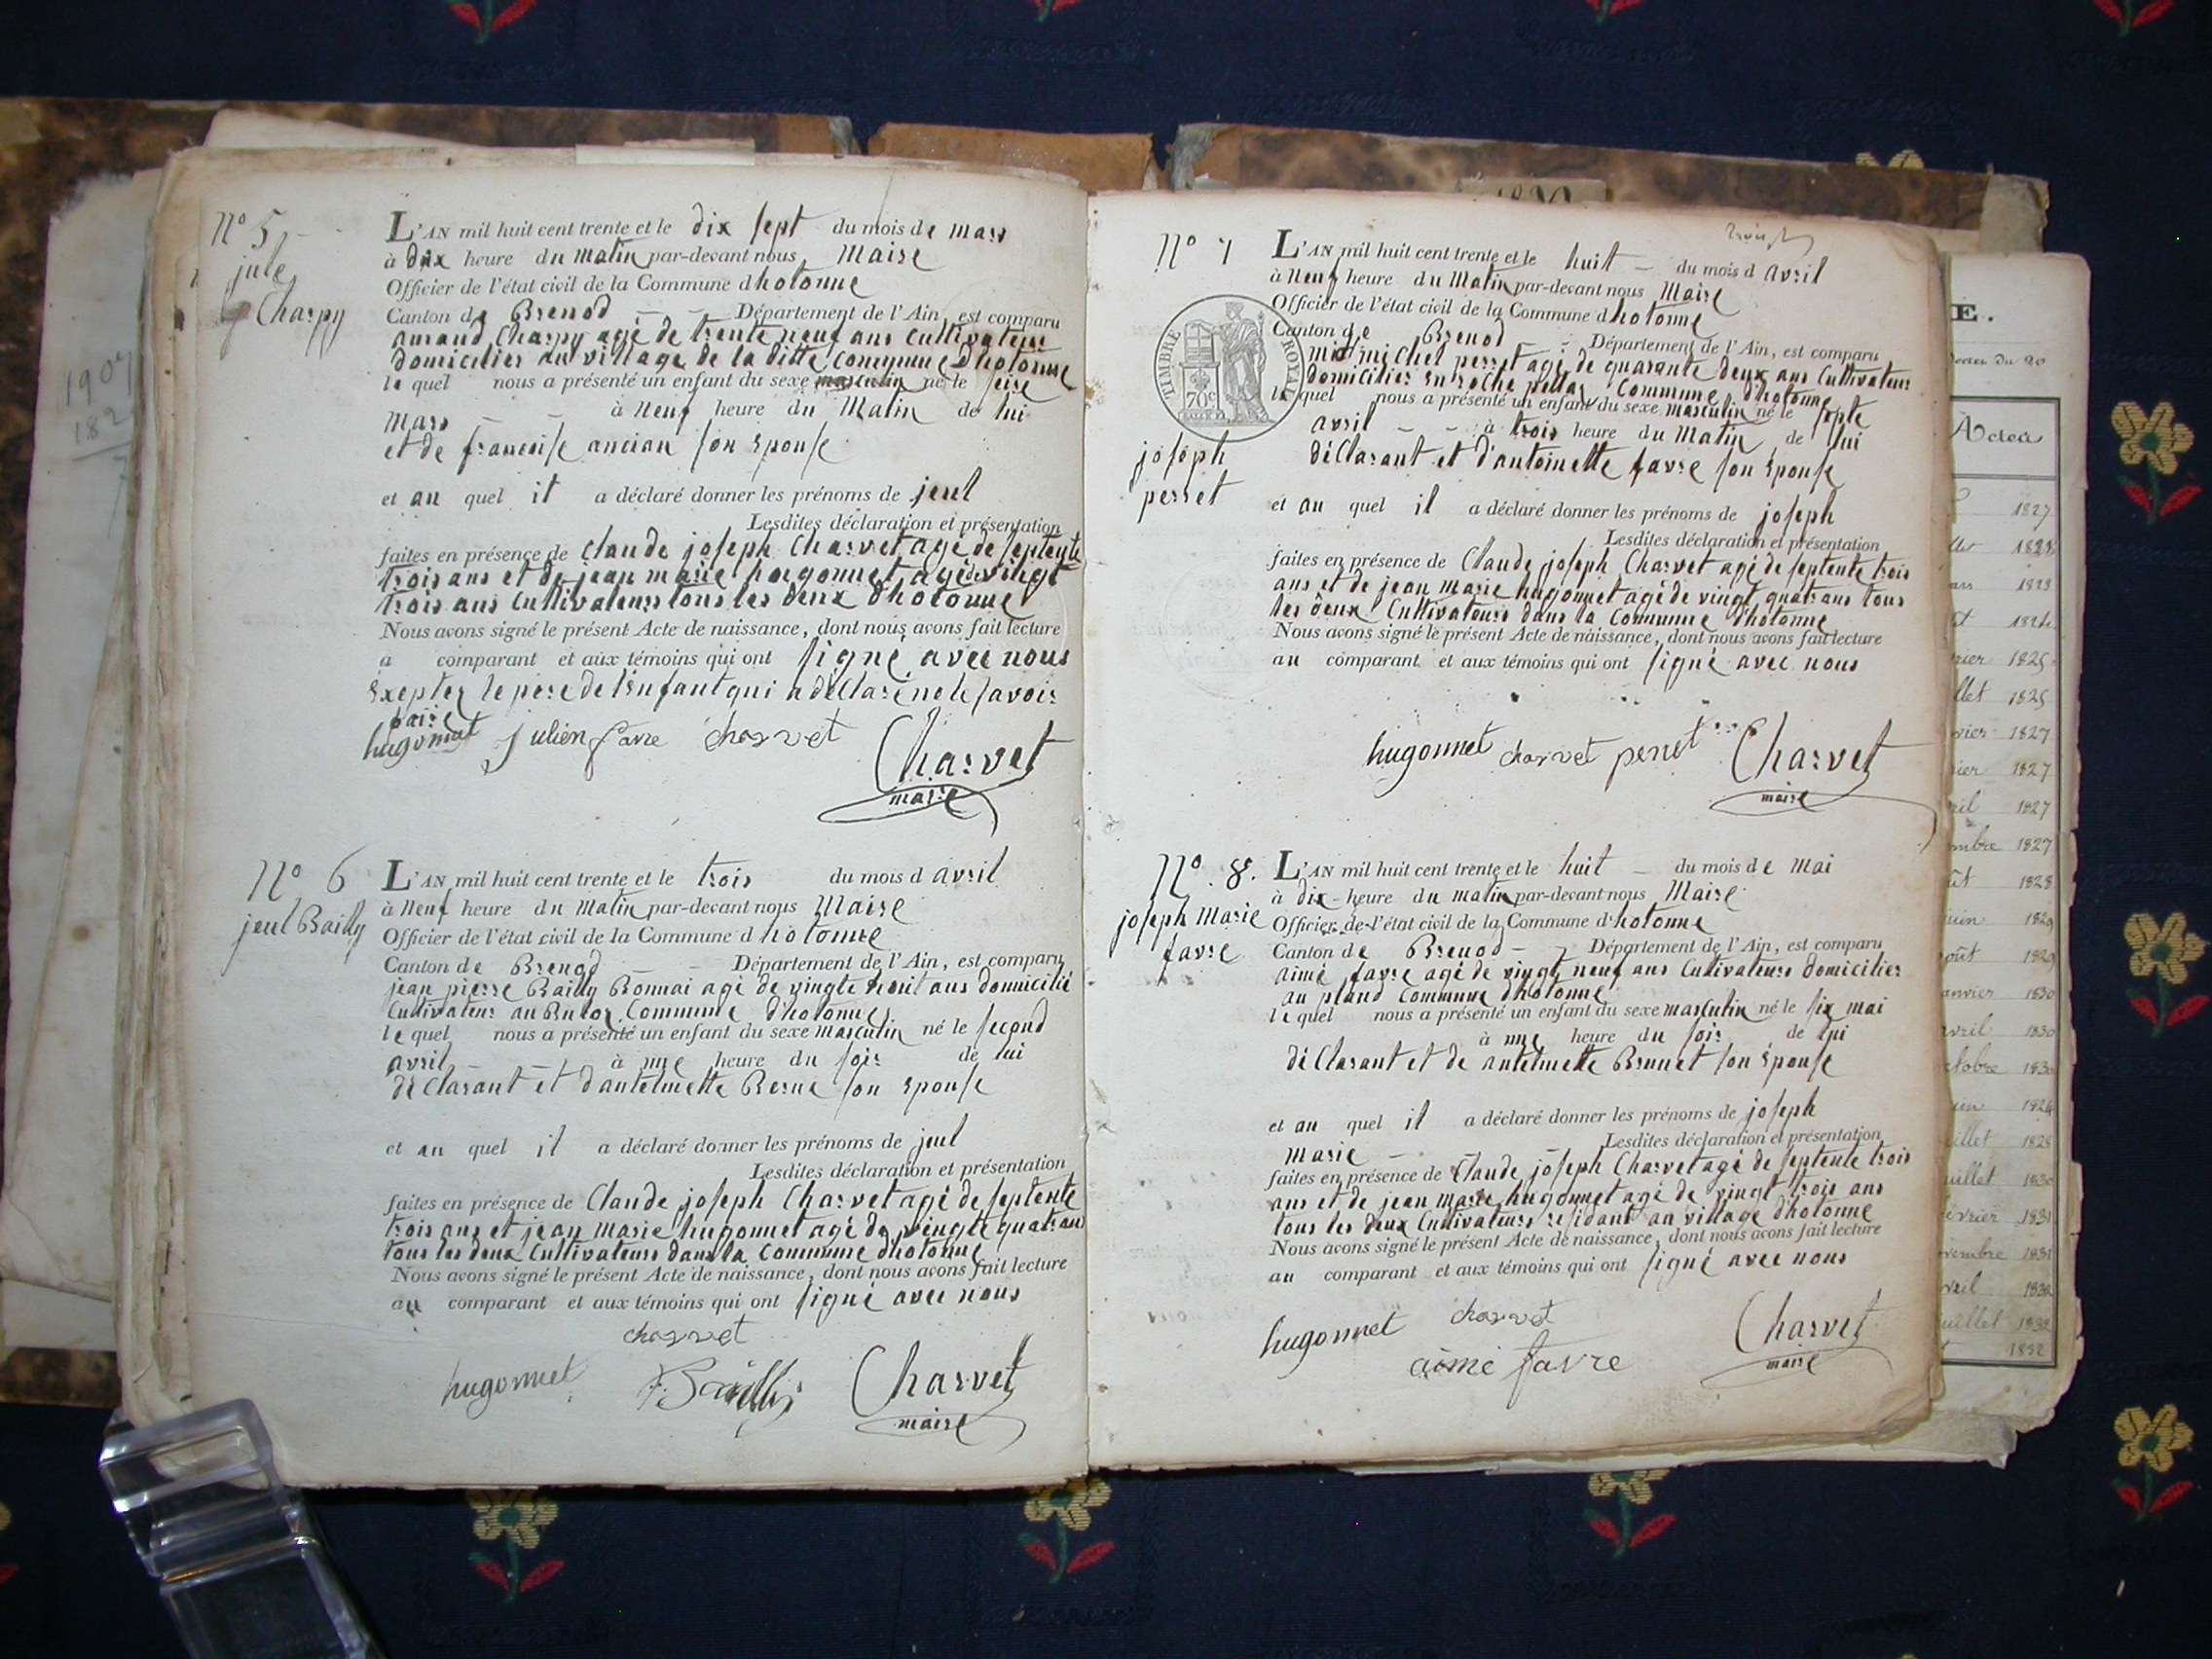 N° 5
jule
Charpy
L'AN mil huit cent trente et le dix sept du mois de mars
à dix heure du matin par-devant nous Maire
Officier de l'état civil de la Commune dhotonne
Canton de Brenod Département de l'Ain, est comparu
Charpy agé de trente neuf ans Cultivateur
domicilier au village de la ditte Commune dhotonne
le quel nous a présenté un enfant du sexe masculin né le seise
mars à Neuf heure du Matin de lui
et de francoise ancian son Epouse
et au quel il a déclaré donner les prénoms de jeul
Lesdites déclaration et présentation
faites en présence de Claude joseph Charvet agé de septente
trois ans et de jean marie hugonnet agé de vingt
trois ans Cultivateurs tous les deux dhotonne
Nous avons signé le présent Acte de naissance, dont nous avons fait lecture
a comparant et aux témoins qui ont signé avec nous
Exepter le pere de lenfant qui a déclaré ne le savoir
faire
hugonnet julien favre charvet Charvet
maire
N° 6
jeul Bailly
L'AN mil huit cent trente et le trois du mois d avril
à Neuf heure du Matin par-devant nous Maire
Officier de l'état civil de la Commune d hotonne
Canton de Brenod Département de l'Ain, est comparu
jean pierre Bailly Bonnai agé de vingte ans domicilié
Cultivateur au Commune dhotonne
le quel nous a présenté un enfant du sexe masculin né le second
avril à une heure du soir de lui
déclarant et dantelmette Berne son Epouse
et au quel il a déclaré donner les prénoms de jeul
Lesdites déclaration et présentation
faites en présence de Claude joseph Charvet agé de septente
trois ans et jean Marie hugonnet agé de vingte quatr ans
tous les deux Cultivateurs dans la Commune dhotonne
Nous avons signé le présent Acte de naissance, dont nous avons fait lecture
au comparant et aux témoins qui ont signé avec nous
charvet
hugonnet Bailly Charvet
maire
N° 7
joseph
perret
TIMBRE ROYAL
70c
L'AN mil huit cent trente et le huit du mois d avril
à Neuf heure du Matin par-devant nous Maire
Officier de l'état civil de la Commune dhotonne
Canton de Brenod Département de l'Ain, est comparu
michel perret agé de quarante deux ans Cultivateur
domicilier en roche Commune dhotonne
le quel nous a présenté un enfant du sexe masculin né le septe
avril à trois heure du Matin de lui
déClarant et d'antoinette favre son Epouse
et au quel il a déclaré donner les prénoms de joseph
Lesdites déclaration et présentation
faites en présence de Claude joseph Charvet agé de septente trois
ans et de jean marie hugonnet agé de vingt quatr ans tous
les deux Cultivateurs dans la Commune dhotonne
Nous avons signé le présent Acte de naissance, dont nous avons fait lecture
au comparant et aux témoins qui ont signé avec nous
hugonnet charvet perret Charvet
maire
N° 8.
joseph Marie
favre
L'AN mil huit cent trente et le huit du mois de mai
à dix heure du matin par-devant nous Maire
Officier de l'état civil de la Commune d'hotonne
Canton de Brenod Département de l'Ain, est comparu
aimé favre agé de vingt neuf ans Cultivateur domicilier
au pland Commune dhotonne
le quel nous a présenté un enfant du sexe masculin né le six mai
à une heure du soir de lui
déClarant et de antelmette Brunet son Epouse
et au quel il a déclaré donner les prénoms de joseph
marie
Lesdites déclaration et présentation
faites en présence de Claude joseph Charvet agé de septente trois
ans et de jean marie hugonnet agé de vingt trois ans
tous les deux Cultivateurs residant au village dhotonne
Nous avons signé le présent Acte de naissance, dont nous avons fait lecture
au comparant et aux témoins qui ont signé avec nous
hugonnet charvet Charvet
aimé favre maire
E.
Actes
1827
1825
1825
1827
1827
1827
1827
1828
1829
1829
1830
1830
1830